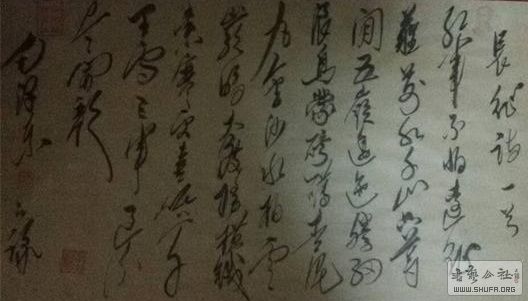 長征詩一首
紅軍不怕遠征
難萬水千山只等
閑五嶺逶迤騰細
浪烏蒙磅礴走泥
丸金沙水拍雲
崖暖大渡橋橫鐵
索寒更喜岷山千
里雪三軍過後
盡開顏
毛澤東
书艺公社
WWW.SHUFA.ORG